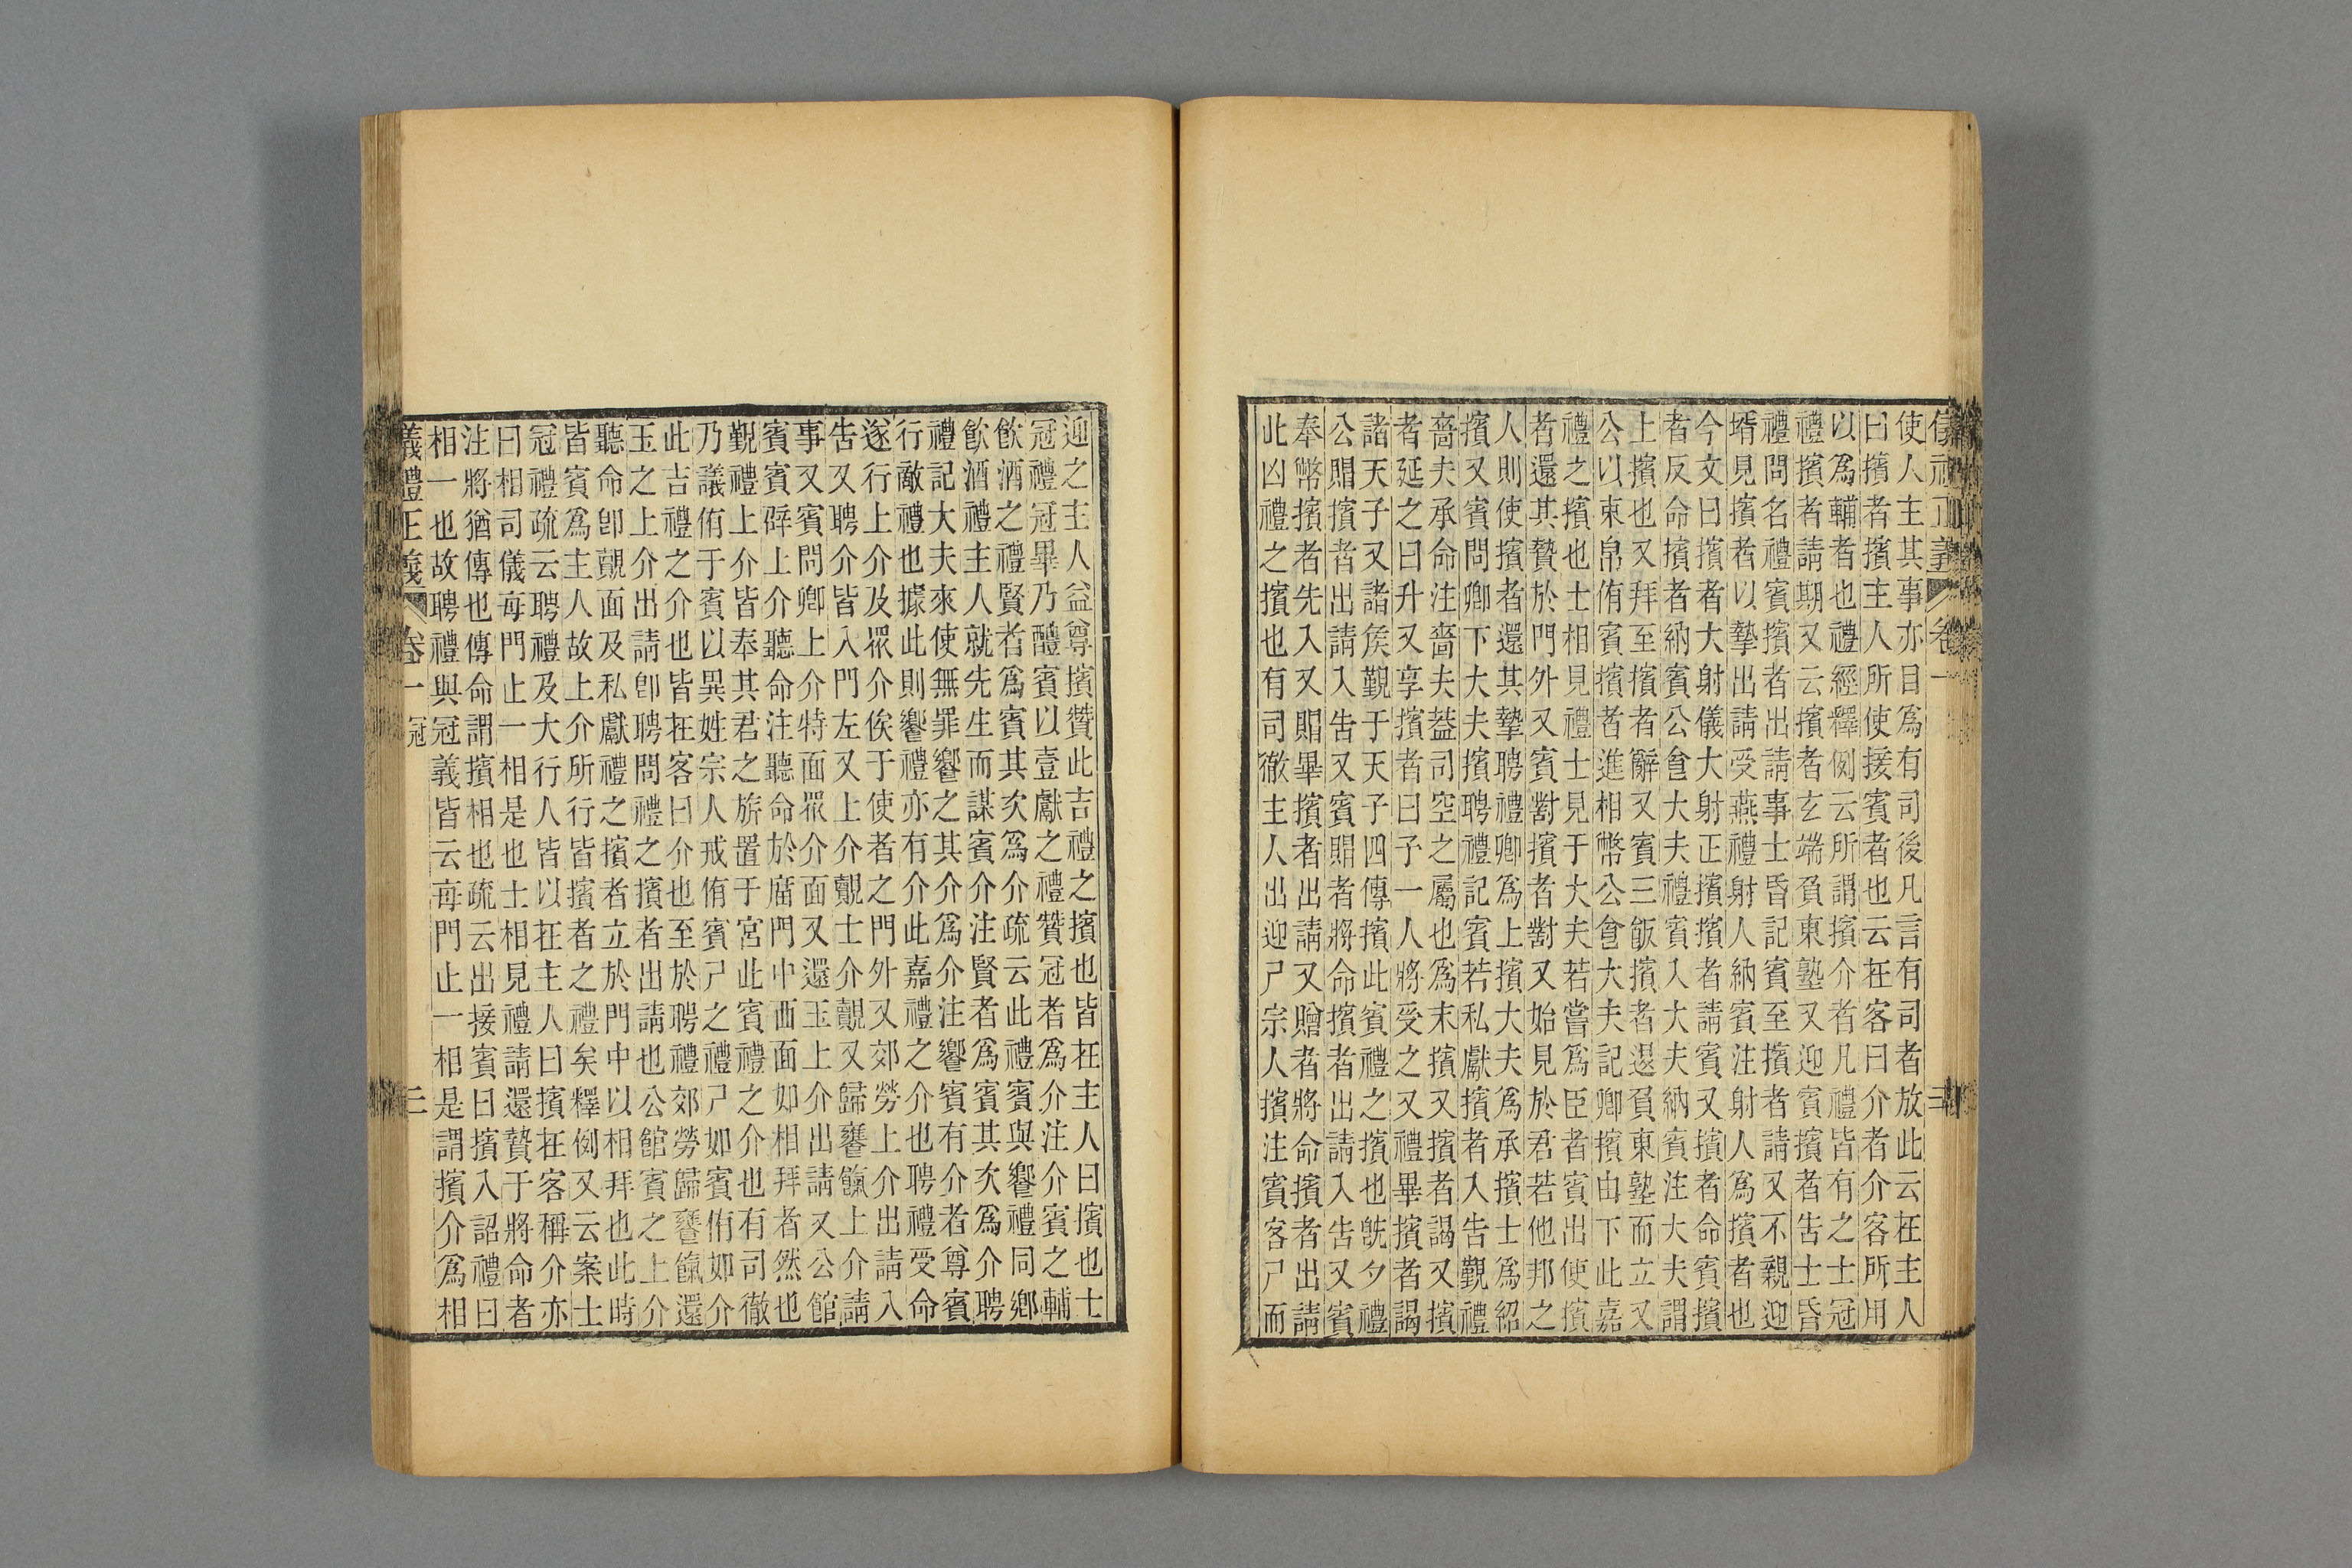 儀禮正義 卷一 三
使人主其事亦目爲有司後凡言有司者放此云在主人
曰擯者擯主人所使接賓者也云在客曰介者介客所用
以爲輔者也禮經釋例云所謂擯介者凡禮皆有之士冠
禮擯者請期又云擯者玄端負東塾又迎賓擯者告士昏
禮問名禮賓擯者出請事士昏記賓至擯者請又不親迎
壻見擯者以摯出請受燕禮射人納賓注射人爲擯者也
今文曰擯者大射儀大射正擯擯者請賓又擯者命賓擯
者反命擯者納賓公食大夫禮賓入大夫納賓注大夫謂
上擯也又拜至擯者辭又賓三飯擯者退負東塾而立又
公以束帛侑賓擯者進相幣公食大夫記卿擯由下此嘉
禮之擯也士相見禮士見于大夫若嘗爲臣者賓出使擯
者還其贄於門外又賓對擯者對又始見於君若他邦之
人則使擯者還其摯聘禮卿爲上擯大夫爲承擯士爲紹
擯又賓問卿下大夫擯聘禮記賓若私獻擯者入告覲禮
嗇夫承命注嗇夫蓋司空之屬也爲末擯又擯者謁又擯
者延之曰升又享擯者曰予一人將受之又禮畢擯者謁
諸天子又諸侯覲于天子四傳擯此賓禮之擯也旣夕禮
公賵擯者出請入告又賓賵者將命擯者出請入告又賓
奉幣擯者先入又賵畢擯者出請又贈者將命擯者出請
此凶禮之擯也有司徹主人出迎尸宗人擯注賓客尸而
迎之主人益尊擯贊此吉禮之擯也皆在主人曰擯也士
冠禮冠畢乃醴賓以壹獻之禮贊冠者爲介注介賓之輔
飮酒之禮賢者爲賓其次爲介疏云此禮賓與饗禮同鄉
飮酒禮主人就先生而謀賓介注賢者爲賓其次爲介聘
禮記大夫來使無罪饗之其介爲介注饗賓有介者尊賓
行敵禮也據此則饗禮亦有介此嘉禮之介也聘禮受命
遂行上介及眾介俟于使者之門外又郊勞上介出請入
告又聘介皆入門左又上介覿士介覿又歸饔餼上介請
事又賓問卿上介特面眾介面又還玉上介出請又公館
賓賓辟上介聽命注聽命於廟門中西面如相拜者然也
覲禮上介皆奉其君之旂置于宮此賓禮之介也有司徹
乃議侑于賓以異姓宗人戒侑賓尸之禮尸如賓侑如介
此吉禮之介也皆在客曰介也至於聘禮郊勞歸饔餼還
玉之上介出請卽聘問禮之擯者出請也公館賓之上介
聽命卽覿面及私獻禮之擯者立於門中以相拜也此時
皆賓爲主人故上介所行皆擯者之禮矣釋例又云案士
冠禮疏云聘禮及大行人皆以在主人曰擯在客稱介亦
曰相司儀每門止一相是也士相見禮請還贄于將命者
注將猶傳也傳命謂擯相也疏云出接賓曰擯入詔禮曰
相一也故聘禮與冠義皆云每門止一相是謂擯介爲相
儀禮正義 卷一 冠 三